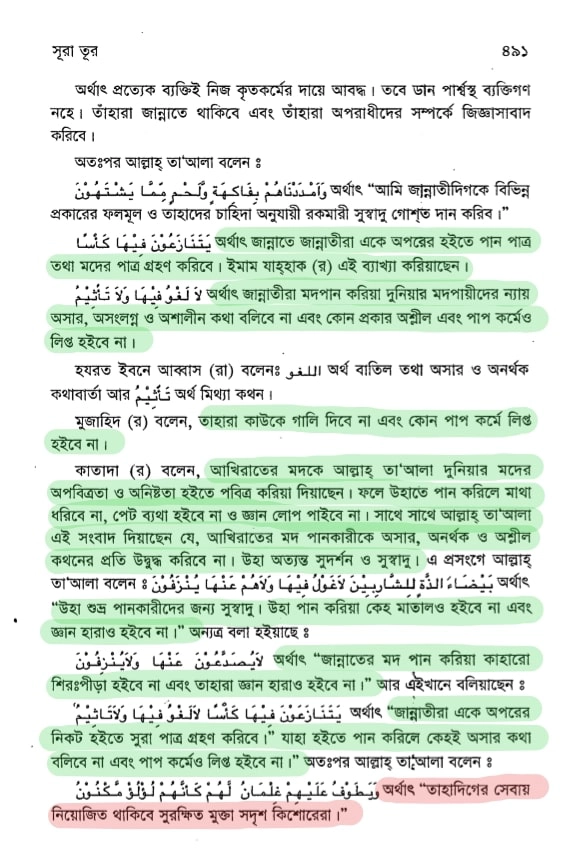 সূরা তূর ৪৯১
অর্থাৎ প্রত্যেক ব্যক্তিই নিজ কৃতকর্মের দায়ে আবদ্ধ। তবে ডান পার্শ্বস্থ ব্যক্তিগণ
নহে। তাঁহারা জান্নাতে থাকিবে এবং তাঁহারা অপরাধীদের সম্পর্কে জিজ্ঞাসাবাদ
করিবে।
অতঃপর আল্লাহ্ তা'আলা বলেন ঃ
وَاَمْدَدْنَاهُمْ بِفَاكِهَةٍ وَّلَحْمٍ مِّمَّا يَشْتَهُوْنَ অর্থাৎ “আমি জান্নাতীদিগকে বিভিন্ন
প্রকারের ফলমূল ও তাহাদের চাহিদা অনুযায়ী রকমারী সুস্বাদু গোশ্‌ত দান করিব।”
يَتَنَازَعُوْنَ فِيْهَا كَأْسًا অর্থাৎ জান্নাতে জান্নাতীরা একে অপরের হইতে পান পাত্র
তথা মদের পাত্র গ্রহণ করিবে। ইমাম যাহ্‌হাক (র) এই ব্যাখ্যা করিয়াছেন।
لاَ لَغْوُ فِيْهَا وَلاَ تَأْثِيْمُ অর্থাৎ জান্নাতীরা মদপান করিয়া দুনিয়ার মদপায়ীদের ন্যায়
অসার, অসংলগ্ন ও অশালীন কথা বলিবে না এবং কোন প্রকার অশ্লীল এবং পাপ কর্মেও
লিপ্ত হইবে না।
হযরত ইবনে আব্বাস (রা) বলেনঃ اللغو অর্থ বাতিল তথা অসার ও অনর্থক
কথাবার্তা আর تَأْثِيْمُ অর্থ মিথ্যা কথন।
মুজাহিদ (র) বলেন, তাহারা কাউকে গালি দিবে না এবং কোন পাপ কর্মে লিপ্ত
হইবে না।
কাতাদা (র) বলেন, আখিরাতের মদকে আল্লাহ্ তা'আলা দুনিয়ার মদের
অপবিত্রতা ও অনিষ্টতা হইতে পবিত্র করিয়া দিয়াছেন। ফলে উহাতে পান করিলে মাথা
ধরিবে না, পেট ব্যথা হইবে না ও জ্ঞান লোপ পাইবে না। সাথে সাথে আল্লাহ্ তা'আলা
এই সংবাদ দিয়াছেন যে, আখিরাতের মদ পানকারীকে অসার, অনর্থক ও অশ্লীল
কথনের প্রতি উদ্বুদ্ধ করিবে না। উহা অত্যন্ত সুদর্শন ও সুস্বাদু। এ প্রসংগে আল্লাহ্
তা'আলা বলেন ঃ بَيْضَاءَ لَذَّةٍ لِلشَّارِبِيْنَ لاَغَوْلُ فِيْهَا وَلاَهُمْ عَنْهَا يُنْزَفُوْنَ অর্থাৎ
“উহা শুভ্র পানকারীদের জন্য সুস্বাদু। উহা পান করিয়া কেহ মাতালও হইবে না এবং
জ্ঞান হারাও হইবে না।” অন্যত্র বলা হইয়াছে ঃ
لاَيُصَدَّعُوْنَ عَنْهَا وَلاَيُنْزِفُوْنَ অর্থাৎ “জান্নাতের মদ পান করিয়া কাহারো
শিরঃপীড়া হইবে না এবং তাহারা জ্ঞান হারাও হইবে না।” আর এইখানে বলিয়াছেন ঃ
يَتَنَازَعُوْنَ فِيْهَا كَأْسًا لاَلَغْوُ فِيْهَا وَلاَتَاثِيْمُ অর্থাৎ “জান্নাতীরা একে অপরের
নিকট হইতে সুরা পাত্র গ্রহণ করিবে।” যাহা হইতে পান করিলে কেহই অসার কথা
বলিবে না এবং পাপ কর্মেও লিপ্ত হইবে না।” অতঃপর আল্লাহ্ তা'আলা বলেন ঃ
وَيَطُوْفُ عَلَيْهِمْ غِلْمَانُ لَّهُمْ كَاَنَّهُمْ لُؤْلُؤُ مَّكْنُوْنُ অর্থাৎ “তাহাদিগের সেবায়
নিয়োজিত থাকিবে সুরক্ষিত মুক্তা সদৃশ কিশোরেরা।”